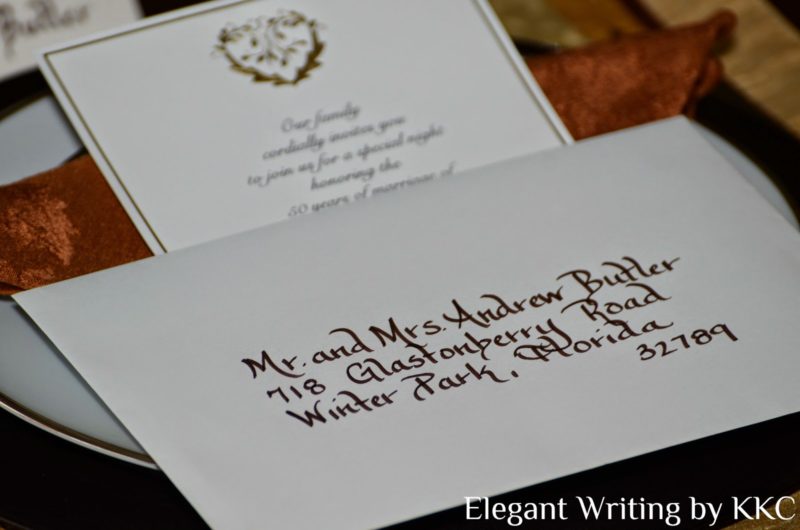 Butler
Our family
cordially invites you
to join us for a special night
honoring the
50 years of marriage of
Mr. and Mrs. Andrew Butler
718 Glastonberry Road
Winter Park, Florida
32789
Elegant Writing by KKC